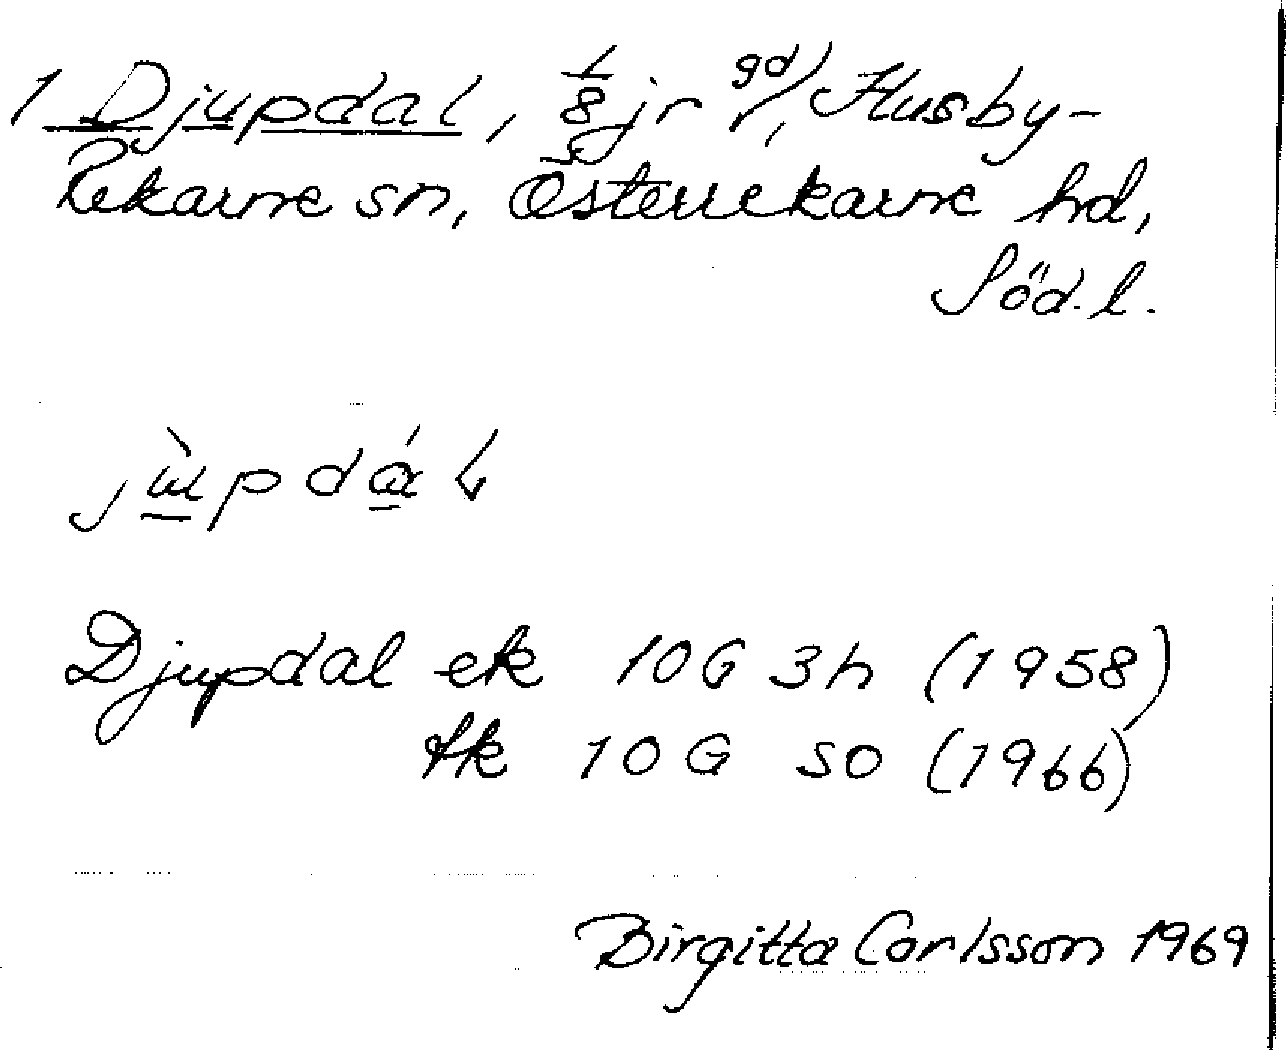 1 Djupdal, 1/8 jr gd/, Husby-
Rekarne sn, Österrekarne hd,
Söd. l.
Djupdal ek 10G 3h (1958)
tk 10G SO (1966)
Birgitta Carlsson 1969